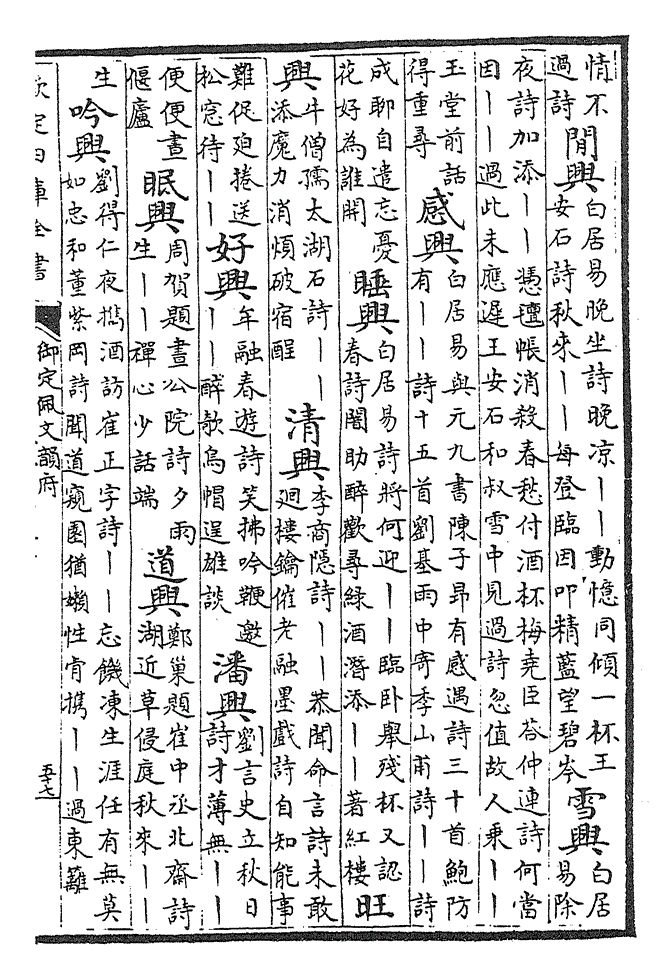 情不
過詩
閒興
白居易晚坐詩晚凉｜｜動憶同傾一杯王
安石詩秋來｜｜每登臨因叩精藍望碧岑
雪興
白居
易除
夜詩加添｜｜憑氊帳消殺春愁付酒杯梅堯臣荅仲連詩何當
因｜｜過此未應遲王安石和叔雪中見過詩忽值故人乘｜｜
玉堂前話
得重尋
感興
白居易與元九書陳子昻有感遇詩三十首鮑防
有｜｜詩十五首劉基雨中寄季山甫詩｜｜詩
成聊自遣忘憂
花好為誰開
睡興
白居易詩將何迎｜｜臨卧舉殘杯又認
春詩闇助醉歡尋綠酒潛添｜｜著紅樓
旺
興
牛僧孺太湖石詩｜｜
添魔力消煩破宿酲
清興
李商隱詩｜｜恭聞命言詩未敢
廻樓鑰催老融墨戲詩自知能事
難促廹捲送
松窓待｜｜
好興
年融春遊詩笑拂吟鞭邀
｜｜醉欹烏帽逞雄談
潘興
劉言史立秋日
詩才薄無｜｜
便便晝
偃廬
眠興
周賀題晝公院詩夕雨
生｜｜禪心少話端
道興
鄭巢題崔中丞北齋詩
湖近草侵庭秋來｜｜
生
吟興
劉得仁夜擕酒訪崔正字詩｜｜忘饑凍生涯任有無莫
如忠和董紫岡詩聞道窺園猶嬾性肯擕｜｜過東籬
欽定四庫全書
御定佩文韻府
五七